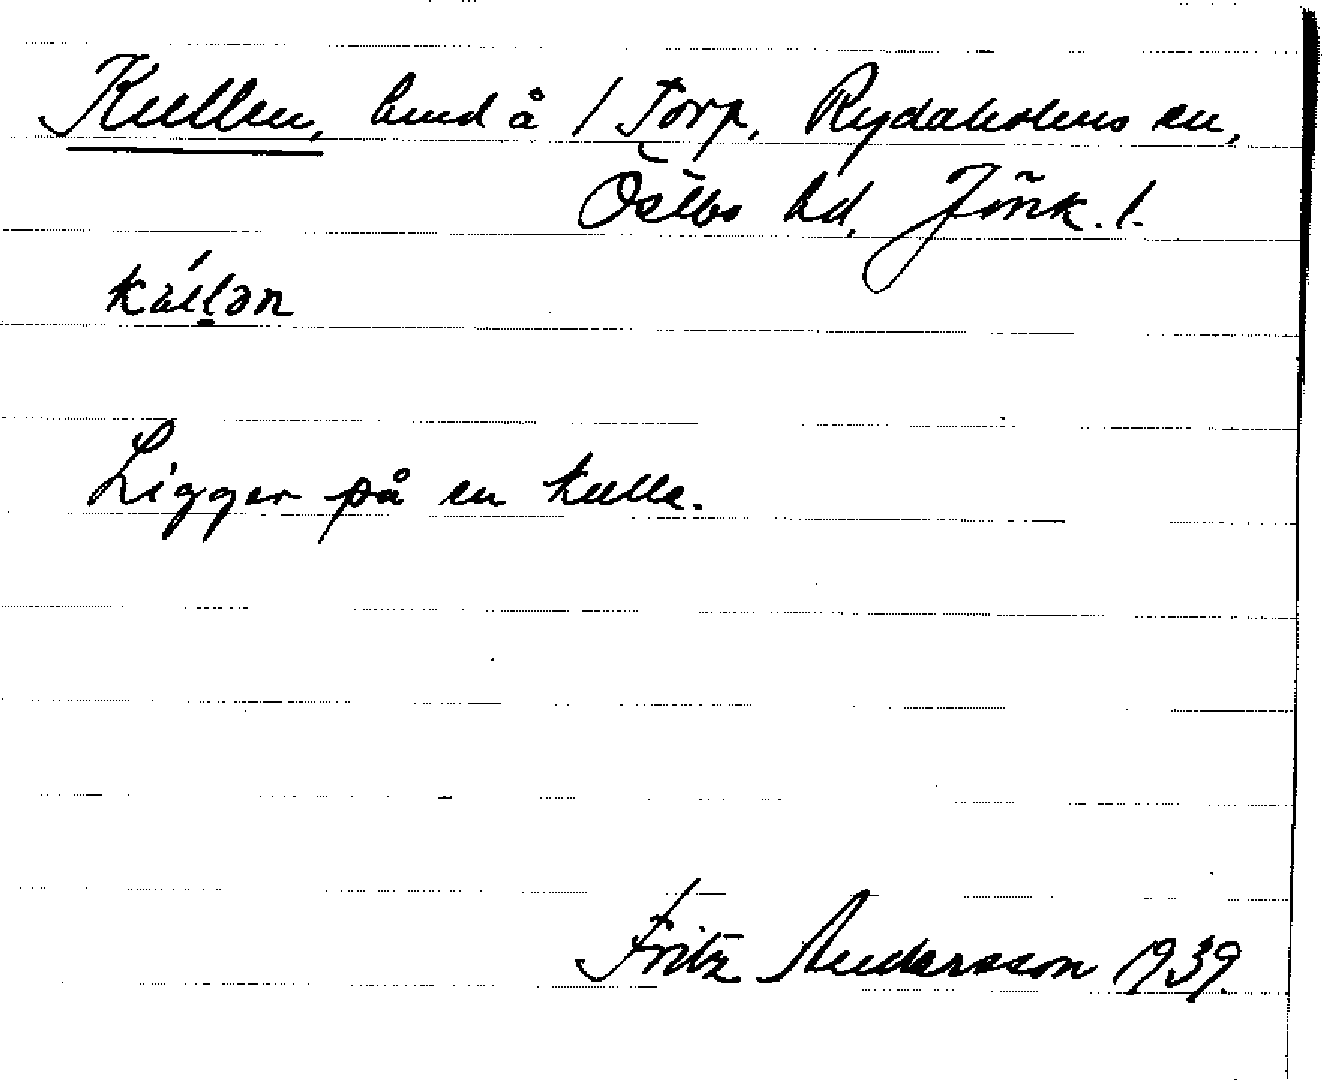 Kullen, lund å 1 Torp, Rydaholms sn,
Östbo hd, Jönk. l.
Ligger på en kulle.
Fritz Andersson 1939.